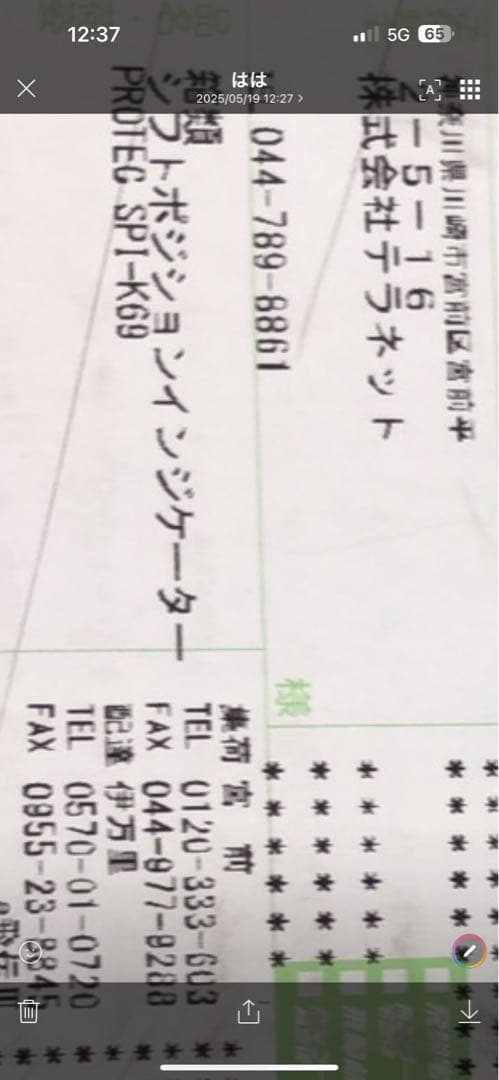 12:37
5G 65
はは
2025/05/19 12:27
神奈川県川崎市宮前区宮前平
2-5-16
株式会社テラネット
044-789-8861
箱類
シフトポジションインジケーター
PROTEC SPI-K69
様
集荷 宮前
TEL 0120-333-603
FAX 044-977-9288
配達 伊万里
TEL 0570-01-0720
FAX 0955-23-8845